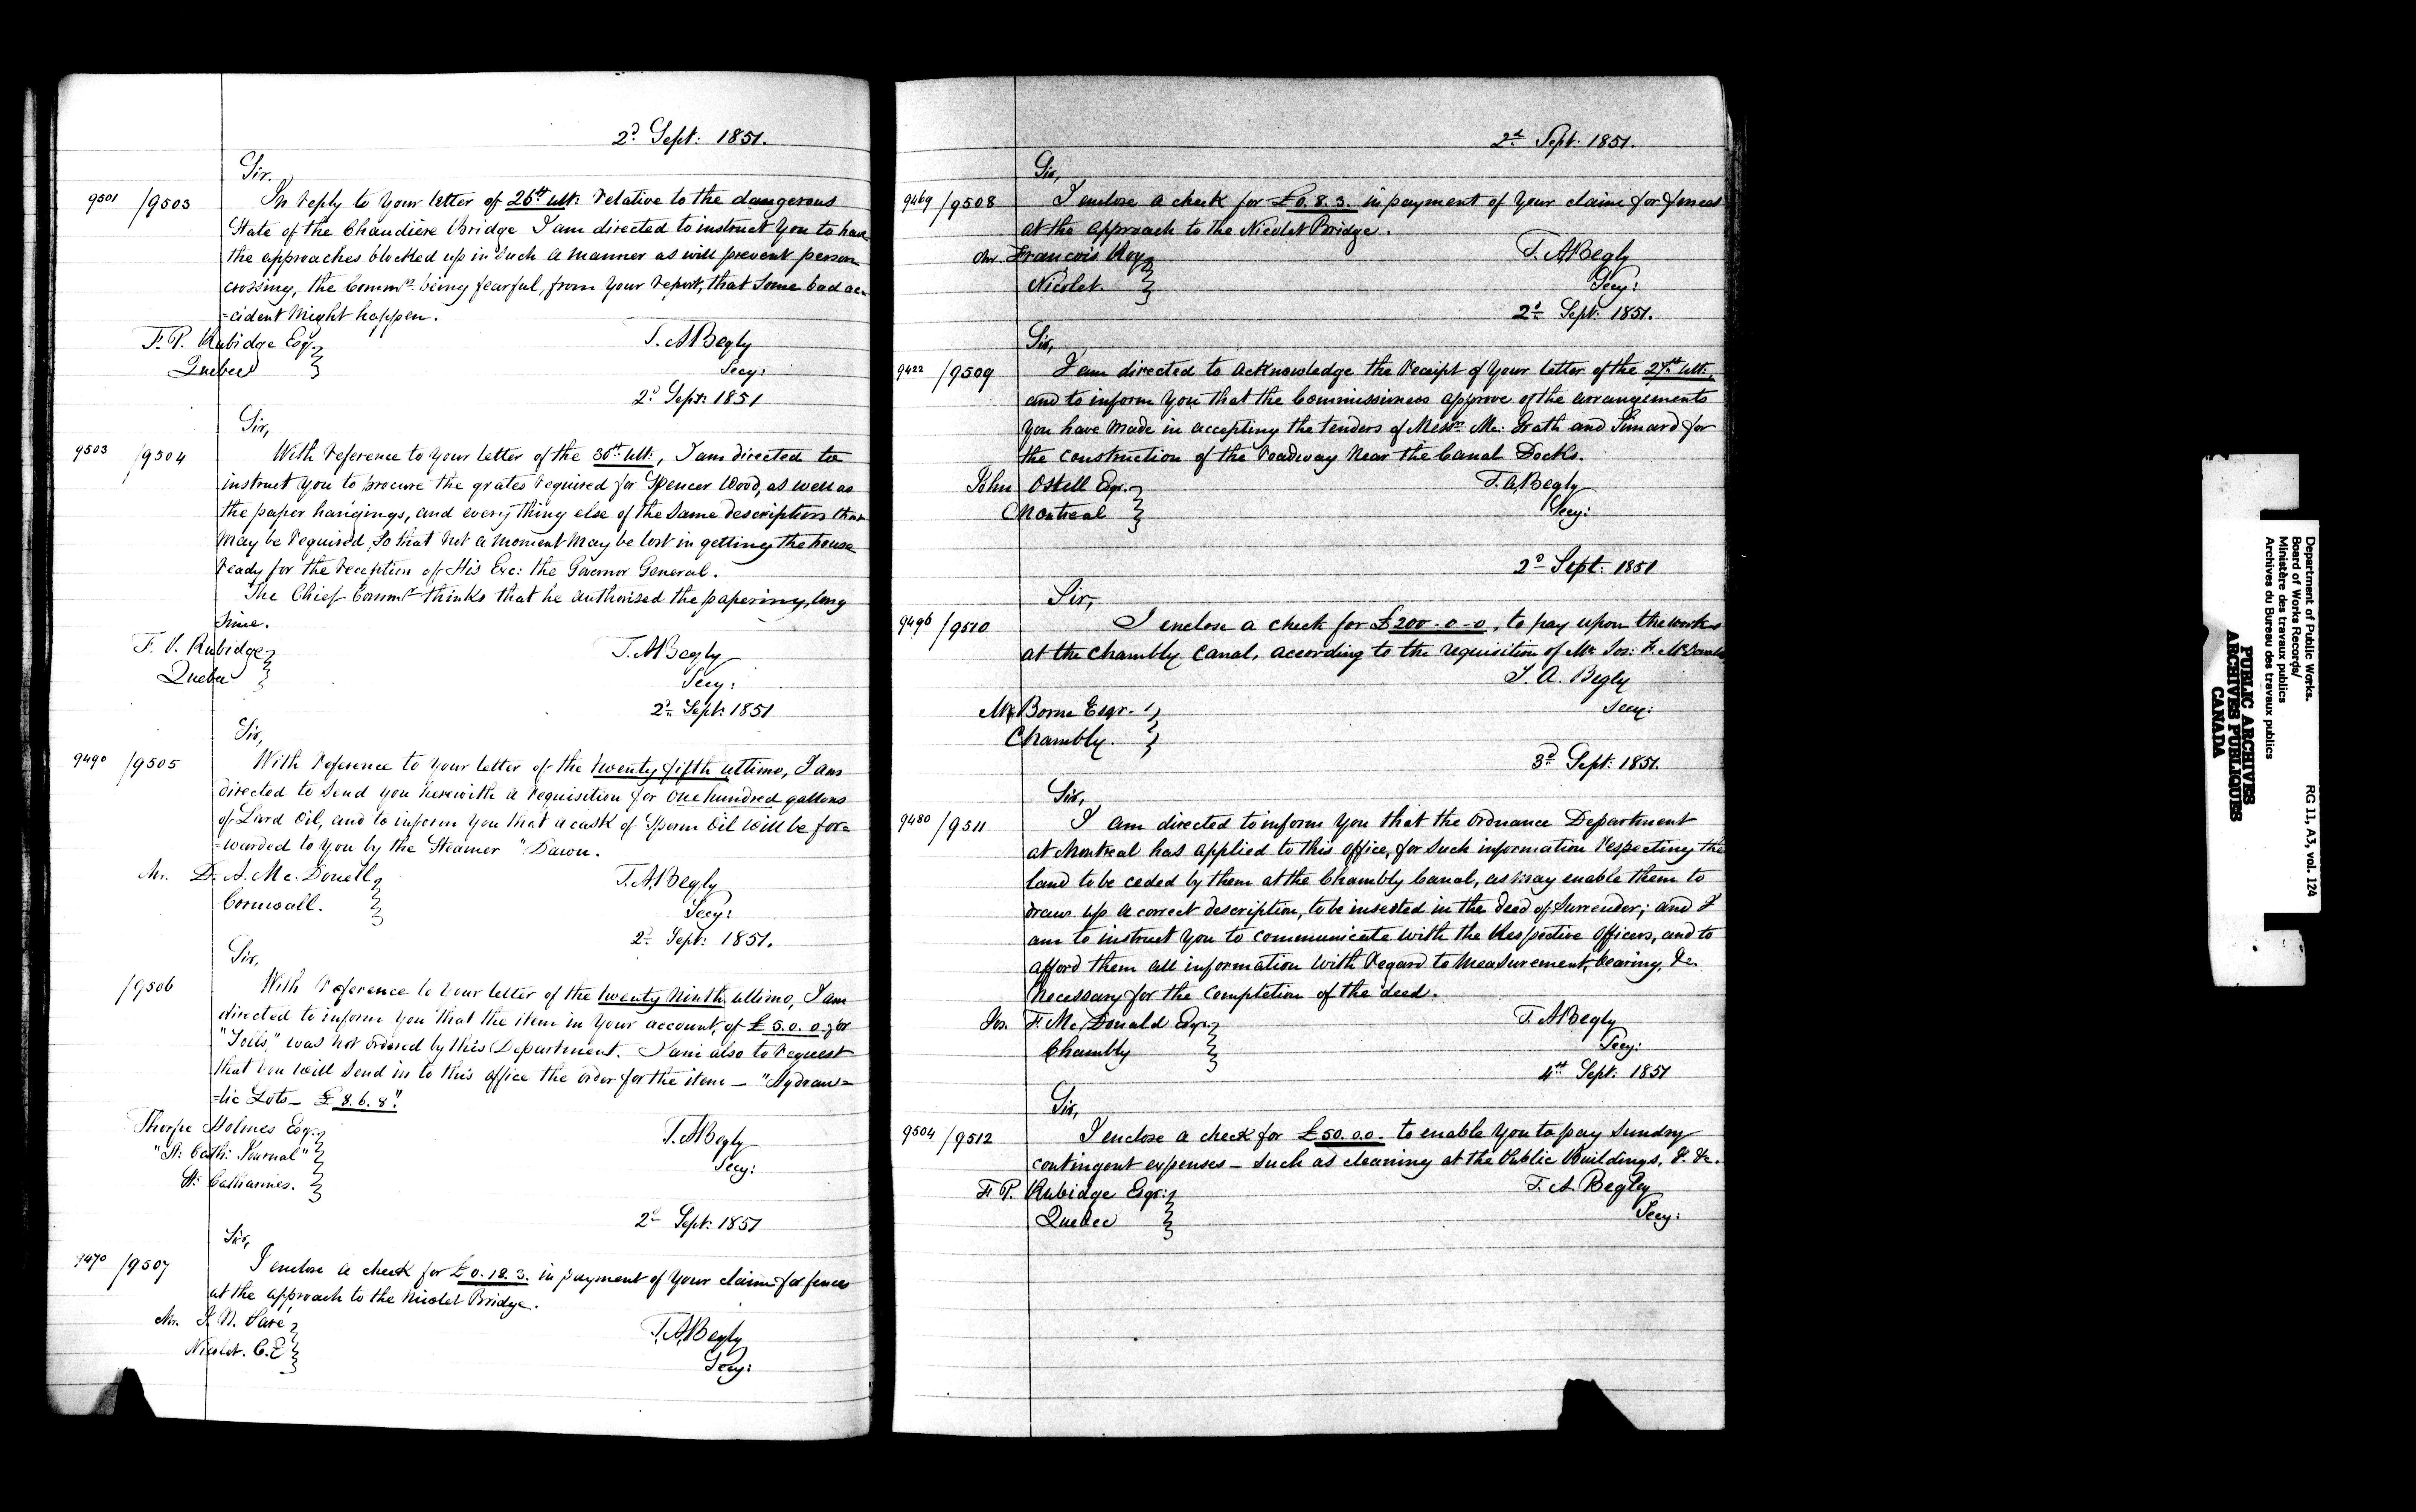 2d Sept: 1851.
Sir.
9501 /9503 In reply to your letter of 26th ult: relative to the dangerous
State of the Chaudiere Bridge I am directed to instruct you to have
the approaches blocked up in such a manner as will prevent person
crossing, the Commrs. being fearful, from your report, that some bad ac-
=cident might happen.
F. P. Rubidge Esqr. T. A Begly
Quebec Secy:
2d Sept: 1851
Sir,
9503 /9504 With reference to your letter of the 30th ult:, I am directed to
instruct you to procure the grates required for Spencer Wood, as well as
the paper hangings, and every thing else of the same description that
may be required, so that not a moment may be lost in getting the house
ready for the reception of His Exc: the Governor General.
The Chief Commr. thinks that he authorised the papering, long
since.
F. P. Rubidge T. A Begly
Quebec Secy:
2d Sept: 1851
Sir,
9490 /9505 With reference to your letter of the twenty fifth ultimo, I am
directed to send you herewith a requisition for one hundred gallons
of Lard Oil, and to inform you that a cask of Sperm Oil will be for=
=warded to you by the Steamer "Dawn.
Mr. D. A. Mc. Donell T. A. Begly
Cornwall. Secy:
2d Sept: 1851.
Sir,
/9506 With reference to your letter of the twenty ninth ultimo, I am
directed to inform you that the item in your account, of £5.0.0 for
"Tolls," was not ordered by this Department. I am also to request
that you will send in to this office the order for the item — "Hydrau=
=lic Lots — £8.6.8"
Thorpe Holmes Esqr. T. A Begly
"St: Cath: Journal" Secy:
St: Catharines.
2d Sept: 1851
Sir,
9470 /9507 I enclose a check for £0.18.3. in payment of your claim for fences
at the approach to the Nicolet Bridge.
Mr. T. A. Begly
Nicolet. C.E Secy:
2d Sept: 1851.
Sir,
9469 /9508 I enclose a check for £0.8.3. in payment of your claim for fences
at the approach to the Nicolet Bridge.
Mr. Francois Roy T. A Begly
Nicolet. Secy:
2d Sept: 1851.
Sir,
9422 /9509 I am directed to acknowledge the receipt of your letter of the 27th ult:,
and to inform you that the Commissioners approve of the arrangements
you have made in accepting the tenders of Messrs. Mc: Grath and Simard for
the construction of the roadway near the Canal Docks.
John Ostell Esqr. T. A. Begly
Montreal Secy:
2d Sept: 1851
Sir,
9496 /9510 I enclose a check for £200-0-0, to pay upon the works
at the Chambly Canal, according to the requisition of Mr Jos: F. McDonald
T. A. Begly
Borne Esqr. Secy:
Chambly.
3d Sept: 1851.
Sir,
9480 /9511 I am directed to inform you that the Ordnance Department
at Montreal has applied to this office, for such information respecting the
land to be ceded by them at the Chambly Canal, as may enable them to
draw up a correct description, to be inserted in the deed of Surrender; and I
am to instruct you to communicate with the Respective Officers, and to
afford them all information with regard to measurement, bearing, &c.
necessary for the completion of the deed.
Jos. F. Mc. Donald Esqr. T. A Begly
Chambly Secy:
4th Sept: 1851
Sir,
9504 /9512 I enclose a check for £50.0.0. to enable you to pay sundry
contingent expenses — such as cleaning at the Public Buildings, &. &c.
F. P. Rubidge Esqr: T. A. Begly
Quebec Secy:
Department of Public Works.
Board of Works Records/
Ministère des travaux publics
Archives du Bureau des travaux publics
RG 11, A3, vol. 124
PUBLIC ARCHIVES
ARCHIVES PUBLIQUES
CANADA